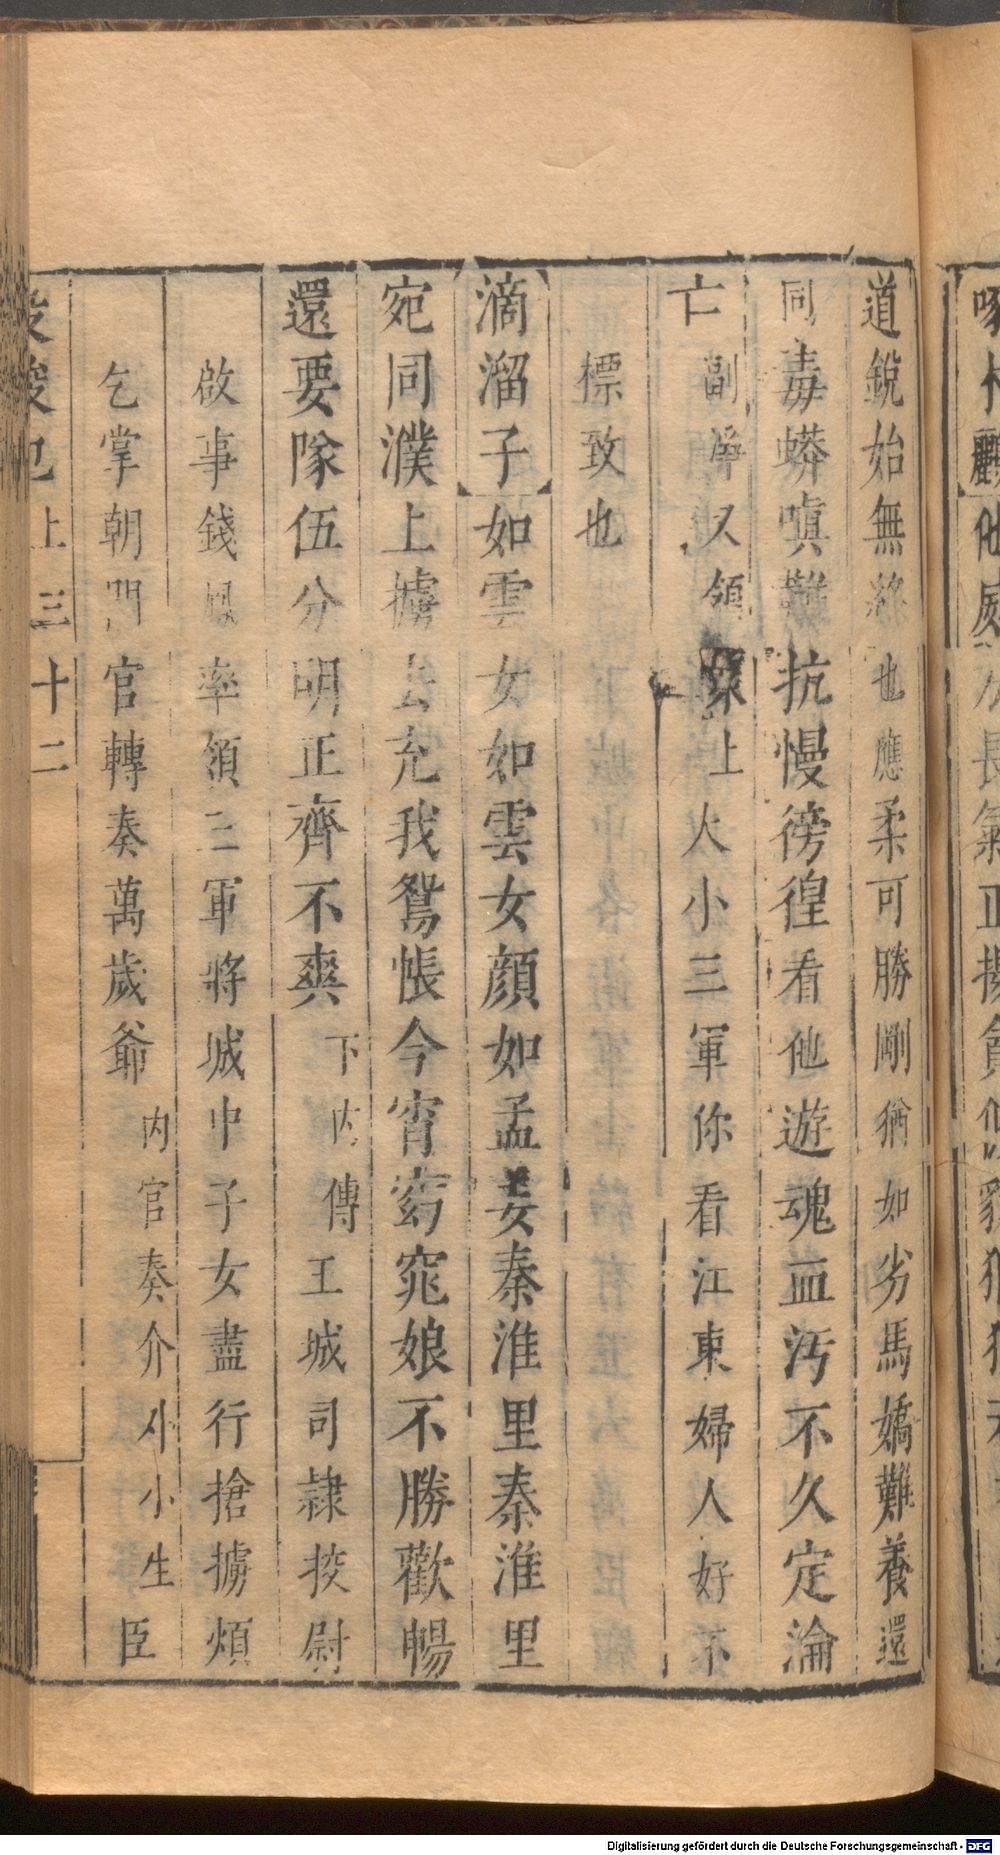 道銳始無終也應柔可勝剛猶如劣馬嬌難養還
同毒蟒嗔難抗慢徬徨看他遊魂血汚不久定淪
亡副淨又領衆上大小三軍你看江東婦人好不
標致也
滴溜子如雲女如雲女顔如孟姜秦淮里秦淮里
宛同濮上擄去充我鴛帳今宵窈窕娘不勝歡暢
還要隊伍分明正齊不爽下内傳王城司隸挍尉
啟事錢鳳率領三軍將城中子女盡行搶擄煩
乞掌朝門官轉奏萬歲爺内官奏介小小生臣
上三十二
Digitalisierung gefördert durch die Deutsche Forschungsgemeinschaft - DFG